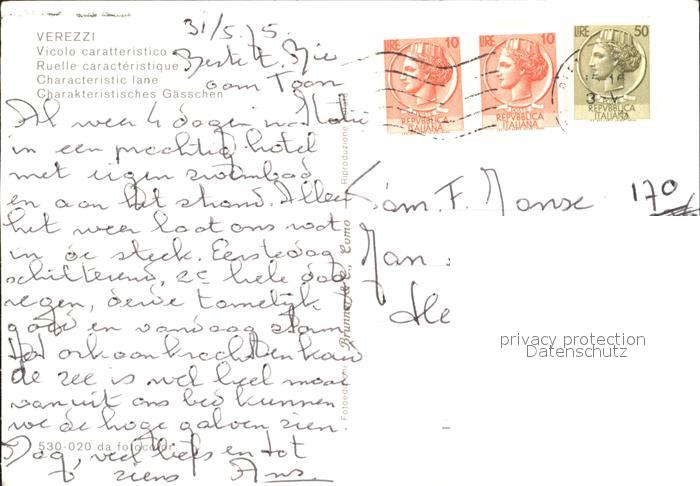 VEREZZI
Vicolo caratteristico
Ruelle caractéristique
Characteristic lane
Charakteristisches Gässchen
31/5
oom Toon
Al weer 4 dagen in Italië
in een prachtig hotel
met eigen zwembad
en aan het strand. Alleen
het weer laat ons wat
in de steek. Eerste dag
schitterend, 2e hele dag
regen, derde tamelijk
goed en vandaag storm
tot orkaankracht en koud
de zee is wel heel mooi
vanuit ons bed kunnen
we de hoge golven zien.
Dag, veel liefs en tot
ziens Ans.
530-020 da fotocolor
Fotoedizioni Brunner & C., Como Riproduzione
LIRE 10
REPVBBLICA
ITALIANA
LIRE 10
REPVBBLICA
ITALIANA
LIRE 50
REPVBBLICA
ITALIANA
Fam. F. Manse 170
privacy protection
Datenschutz